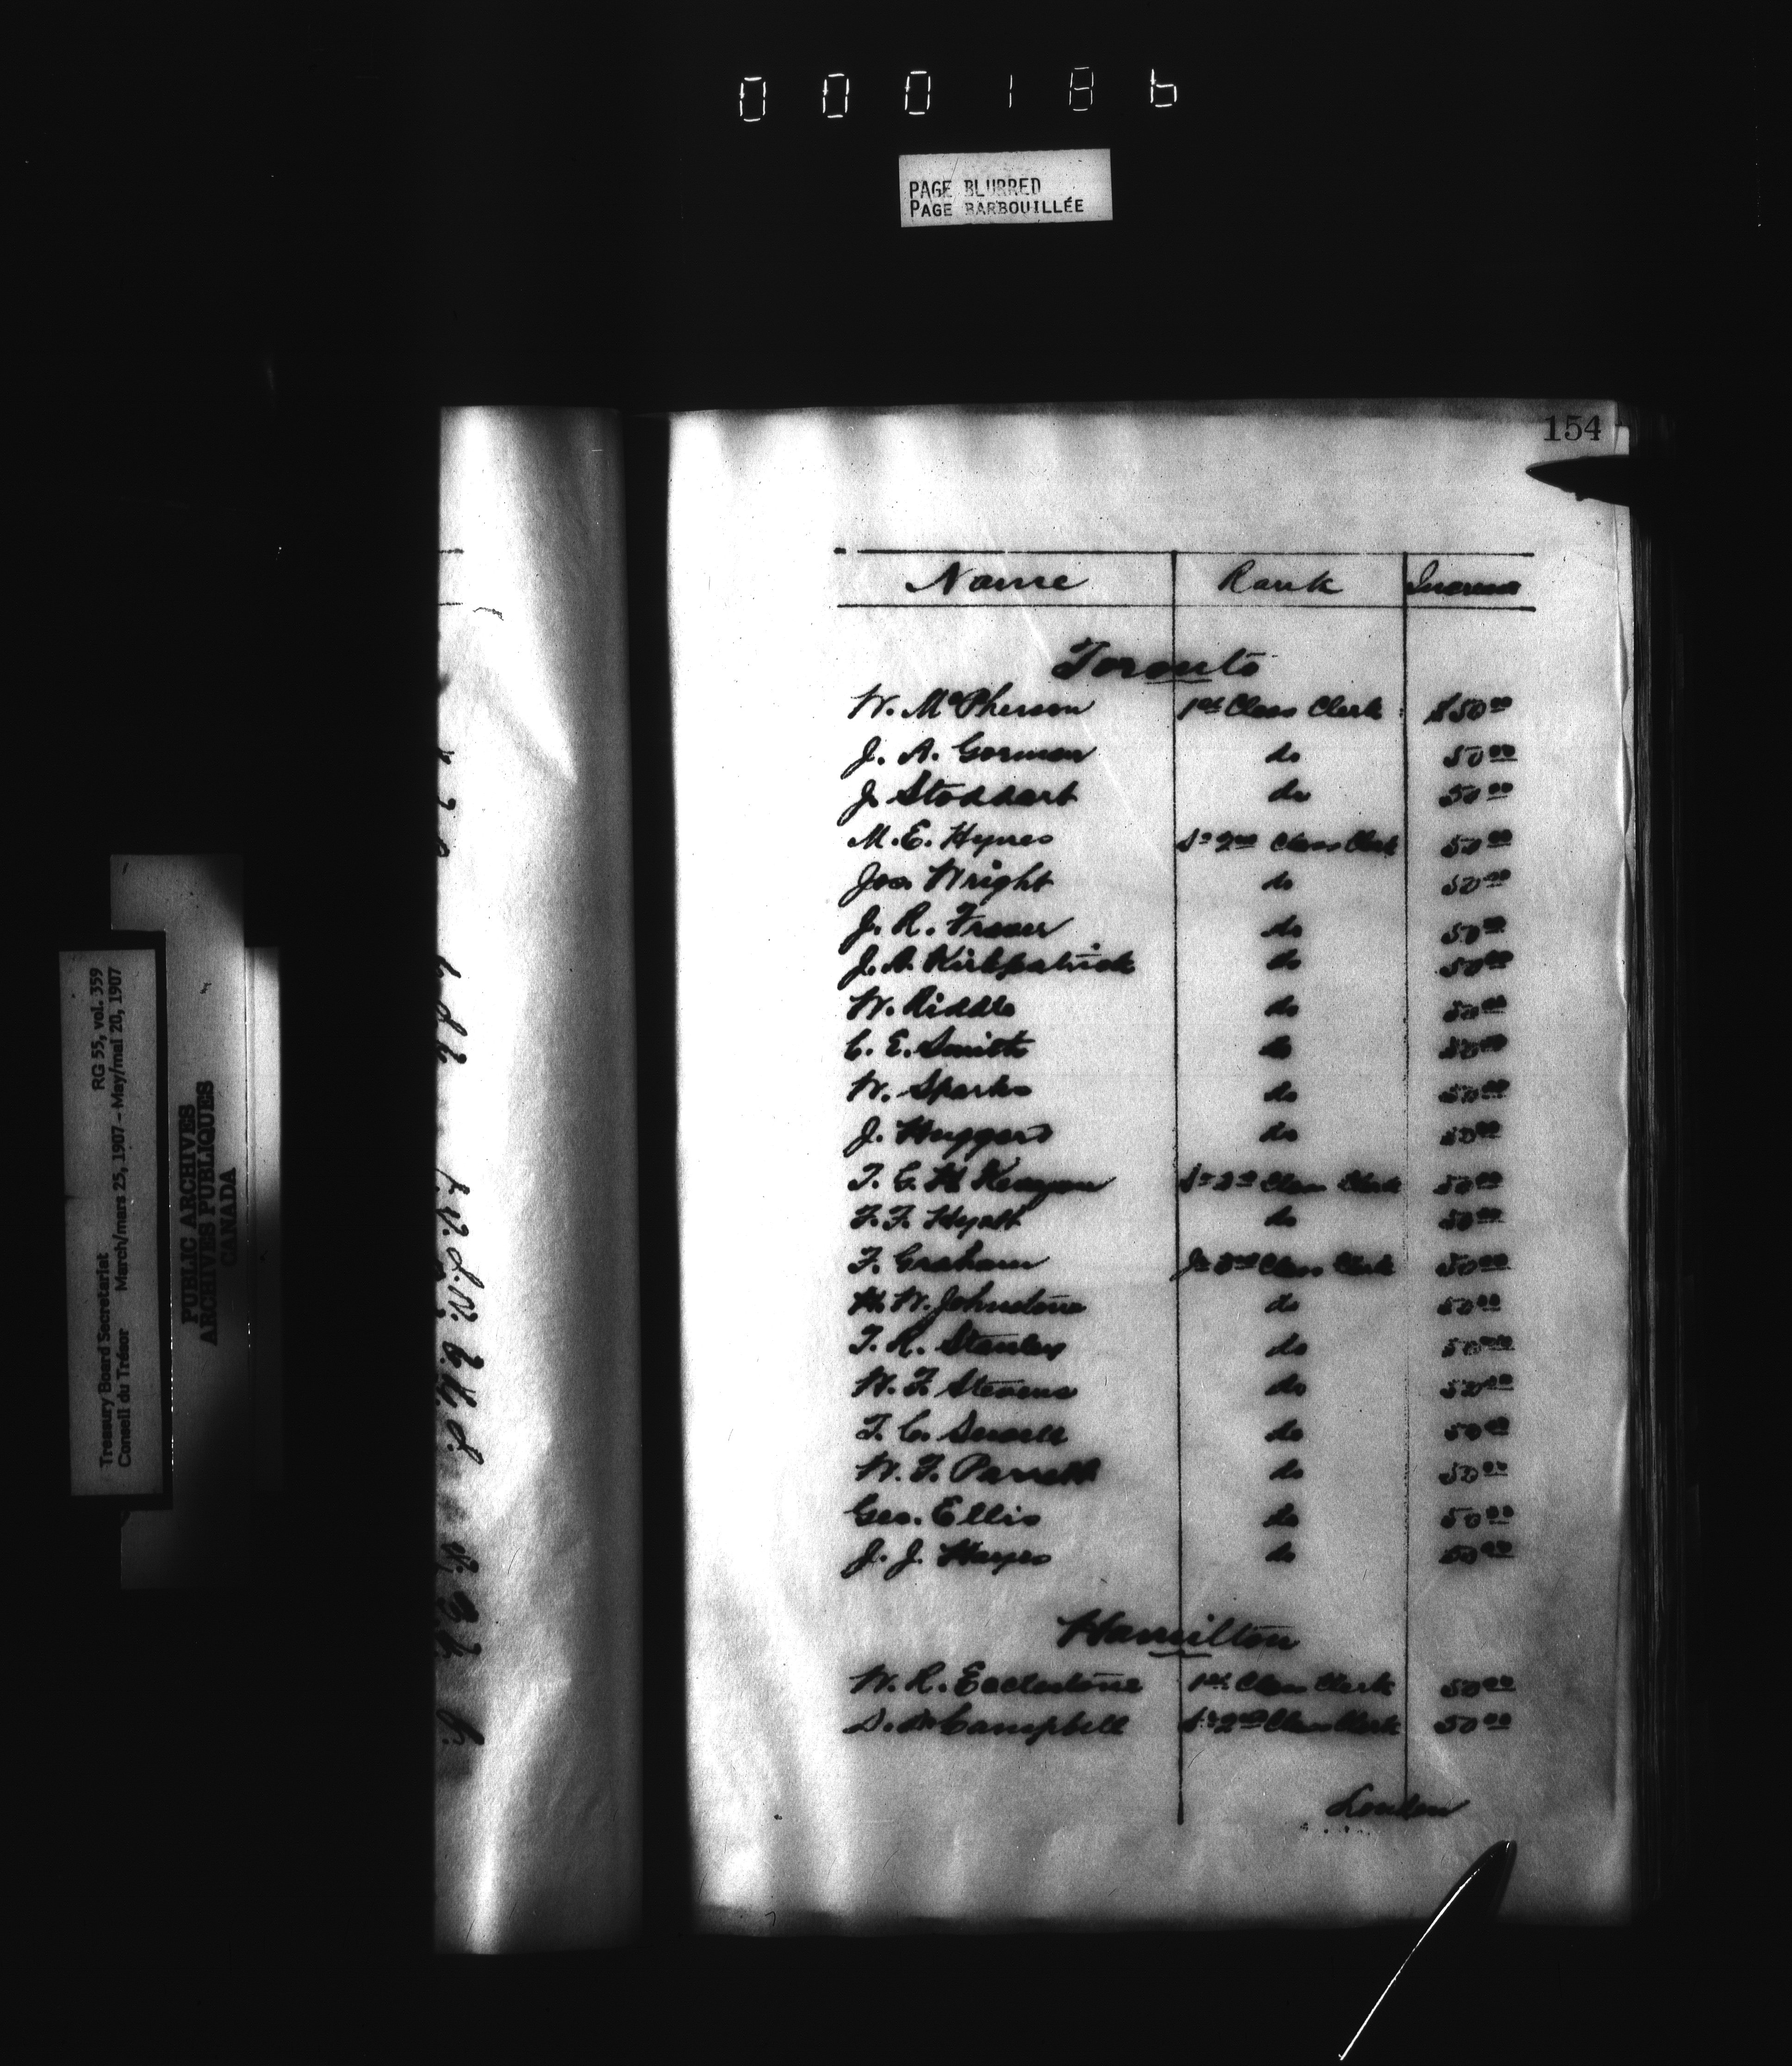 000186
PAGE BLURRED
PAGE BARBOUILLÉE
154
Name Rank Increase
Toronto
W. McPherson 1st Class Clerk $50 00
J. A. Gorman do 50 00
J. Stoddart do 50 00
M. E. Hynes Sr 2nd Class Clerk 50 00
Jos. Wright do 50 00
J. R. Fraser do 50 00
J. A. Kirkpatrick do 50 00
W. Riddle do 50 00
C. E. Smith do 50 00
W. Sparks do 50 00
J. Huggard do 50 00
T. G. H. Keagan Sr 2nd Class Clerk 50 00
F. F. Hyatt do 50 00
F. Graham Jr 2nd Class Clerk 50 00
H. W. Johnstone do 50 00
T. R. Stanley do 50 00
W. F. Stevens do 50 00
T. C. do 50 00
W. F. do 50 00
Geo. Ellis do 50 00
J. J. Hayes do 50 00
Hamilton
W. R. Ecclestone 1st Class Clerk 50 00
Campbell Sr 2nd Class Clerk 50 00
London
Treasury Board Secretariat RG 55, vol. 359
Conseil du Trésor March/mars 25, 1907 – May/mai 20, 1907
PUBLIC ARCHIVES
ARCHIVES PUBLIQUES
CANADA